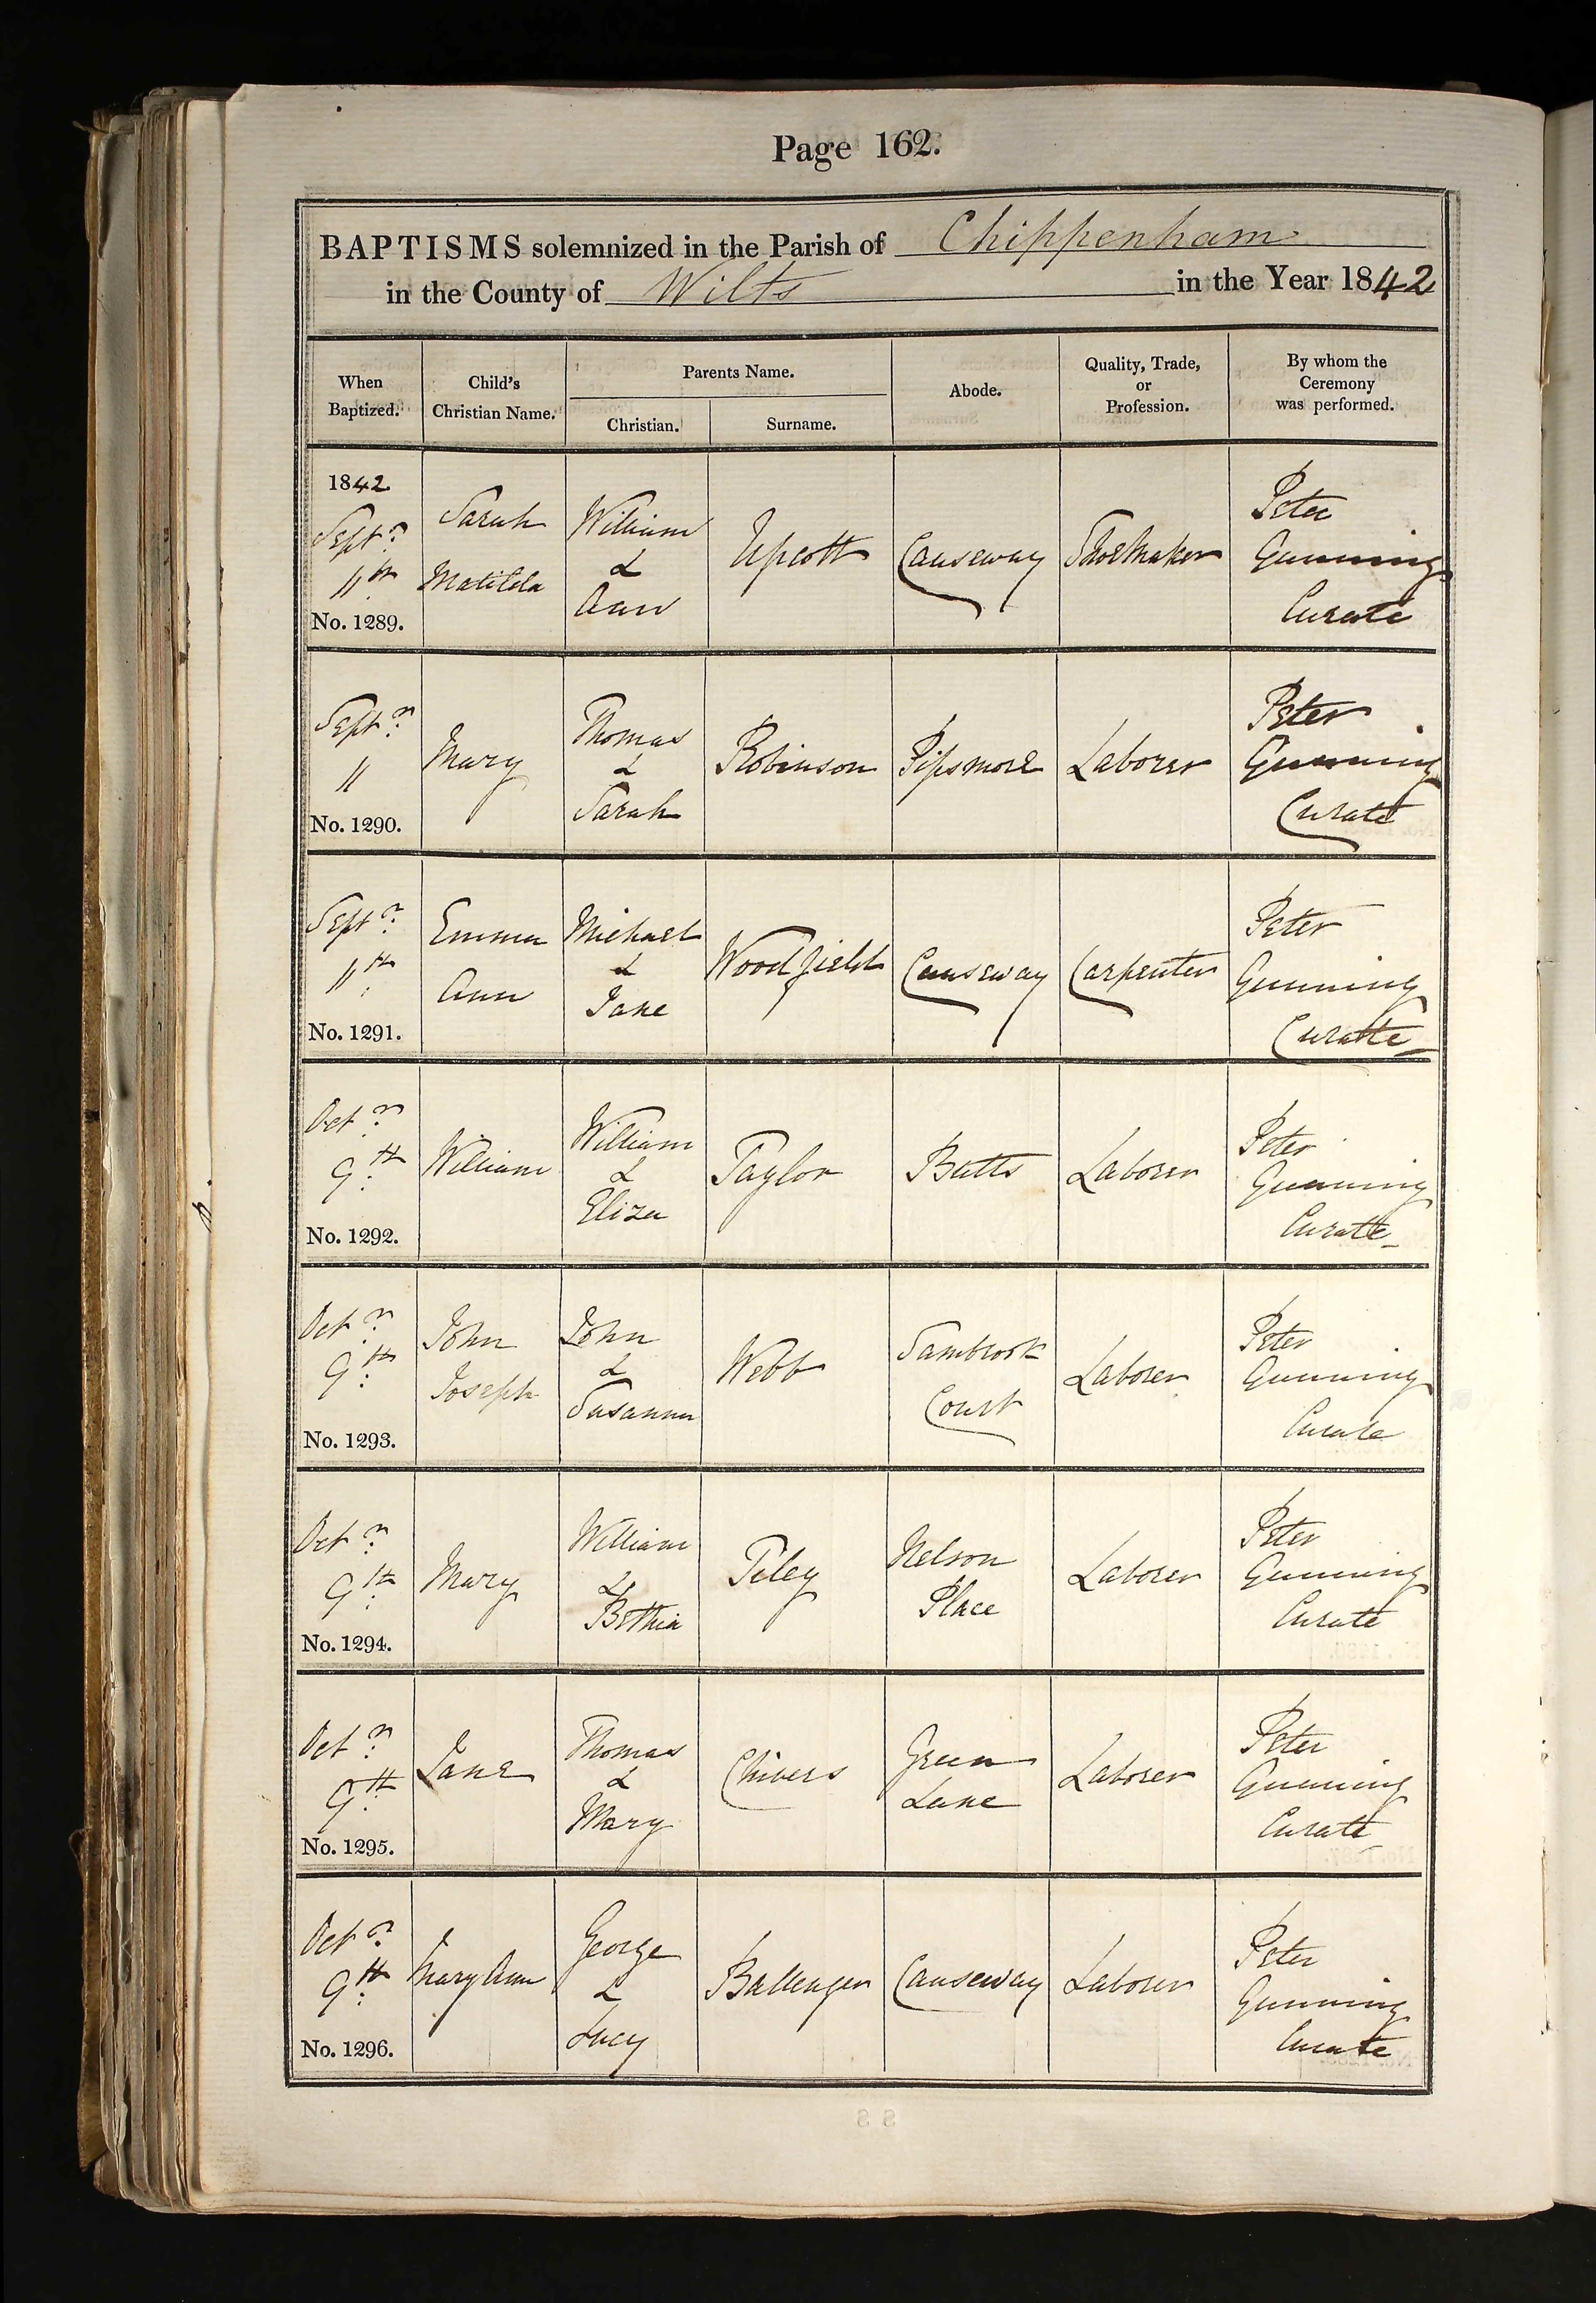 Page 162.
BAPTISMS solemnized in the Parish of Chippenham
in the County of Wilts in the Year 1842
When Baptized.
Child's Christian Name.
Parents Name.
Christian.
Surname.
Abode.
Quality, Trade, or Profession.
By whom the Ceremony was performed.
1842
Septr
11th
No. 1289.
Sarah
Matilda
William
&
Ann
Upcott
Causeway
Shoemaker
Peter
Gunning
Curate
Septr
11
No. 1290.
Mary
Thomas
&
Sarah
Robinson
Pipsmore
Laborer
Peter
Gunning
Curate
Septr
11th
No. 1291.
Emma
Ann
Michael
&
Jane
Woodfield
Causeway
Carpenter
Peter
Gunning
Curate
Octr
9th
No. 1292.
William
William
&
Eliza
Taylor
Butts
Laborer
Peter
Gunning
Curate
Octr
9th
No. 1293.
John
Joseph
John
&
Susanna
Webb
Sambrook
Court
Laborer
Peter
Gunning
Curate
Octr
9th
No. 1294.
Mary
William
&
Bethia
Nelson
Place
Laborer
Peter
Gunning
Curate
Octr
9th
No. 1295.
Jane
Thomas
&
Mary
Chivers
Green
Lane
Laborer
Peter
Gunning
Curate
Octr
9th
No. 1296.
Mary Ann
George
&
Lucy
Ballenger
Causeway
Laborer
Peter
Gunning
Curate